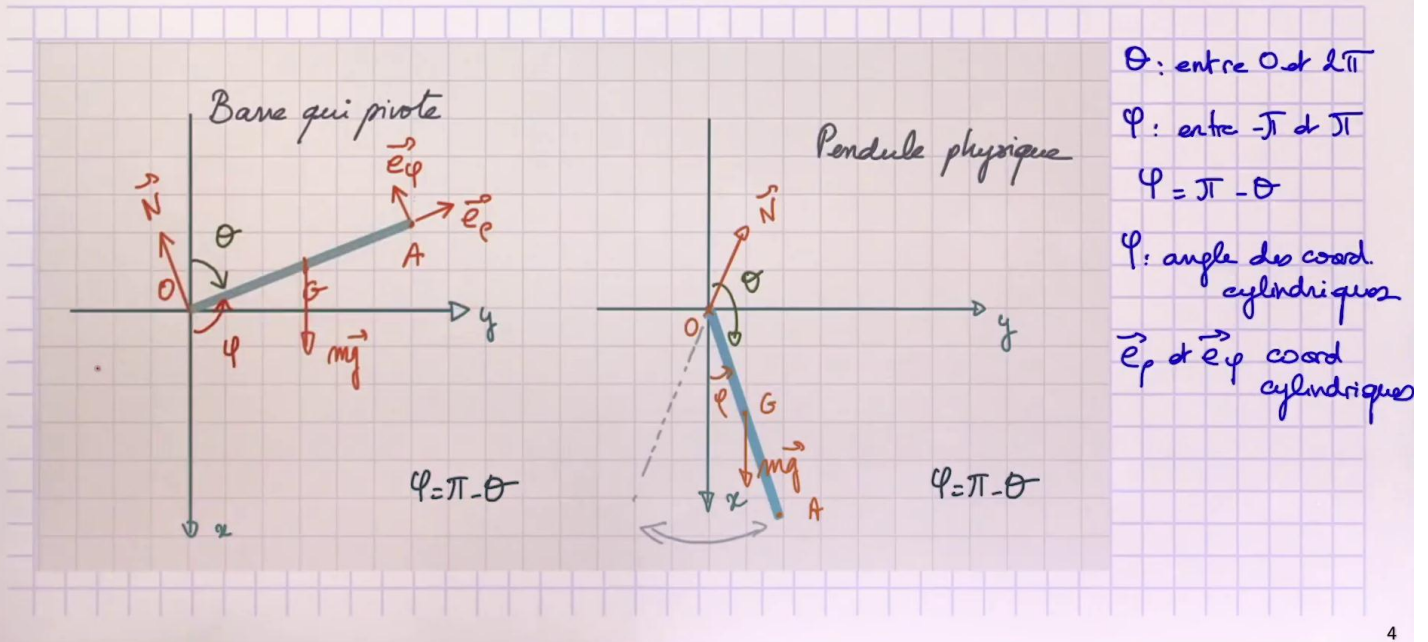 Barre qui pivote
N
θ
e_φ
e_ρ
A
O
G
y
φ
mg
φ = π - θ
x
Pendule physique
N
θ
O
y
φ
G
mg
x
A
φ = π - θ
θ : entre 0 et 2π
φ : entre -π et π
φ = π - θ
φ : angle des coord.
cylindriques
e_ρ et e_φ coord
cylindriques
4